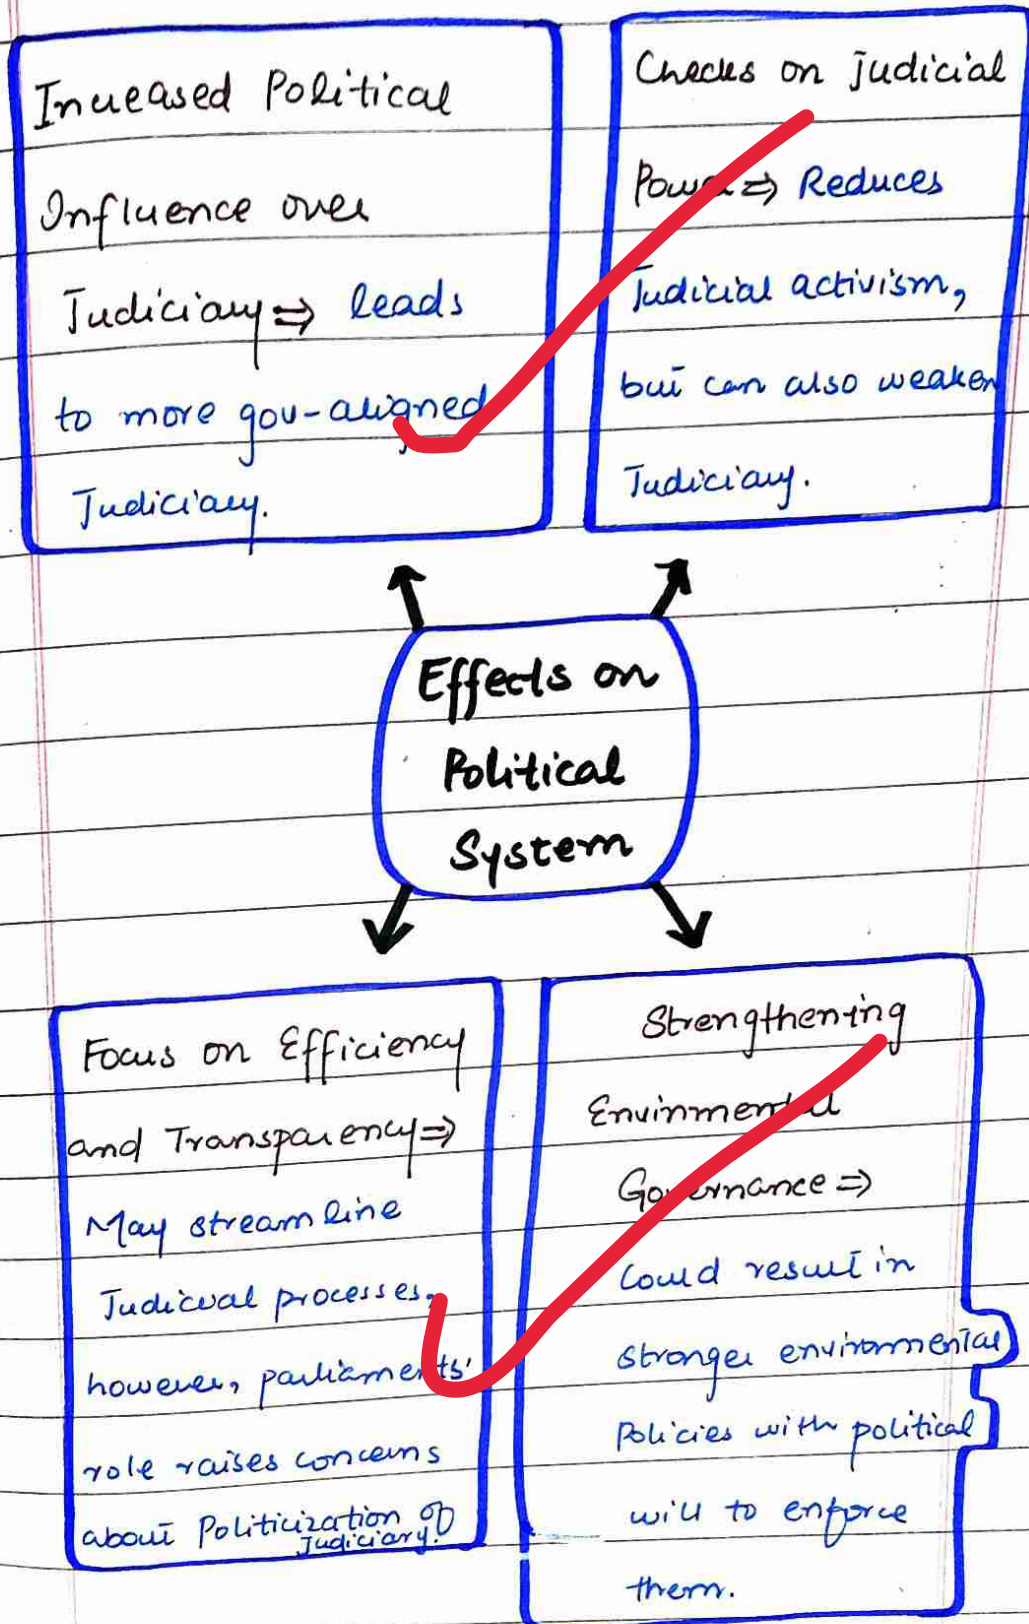 Increased Political
Influence over
Judiciary ⇒ leads
to more gov-aligned
Judiciary.
Checks on judicial
Power ⇒ Reduces
Judicial activism,
but can also weaken
Judiciary.
Effects on
Political
System
Focus on Efficiency
and Transparency ⇒
May streamline
Judicual processes,
however, parliaments'
role raises concerns
about Politicization of
Judiciary.
Strengthening
Envinmental
Governance ⇒
Could result in
stronger environmental
Policies with political
will to enforce
them.